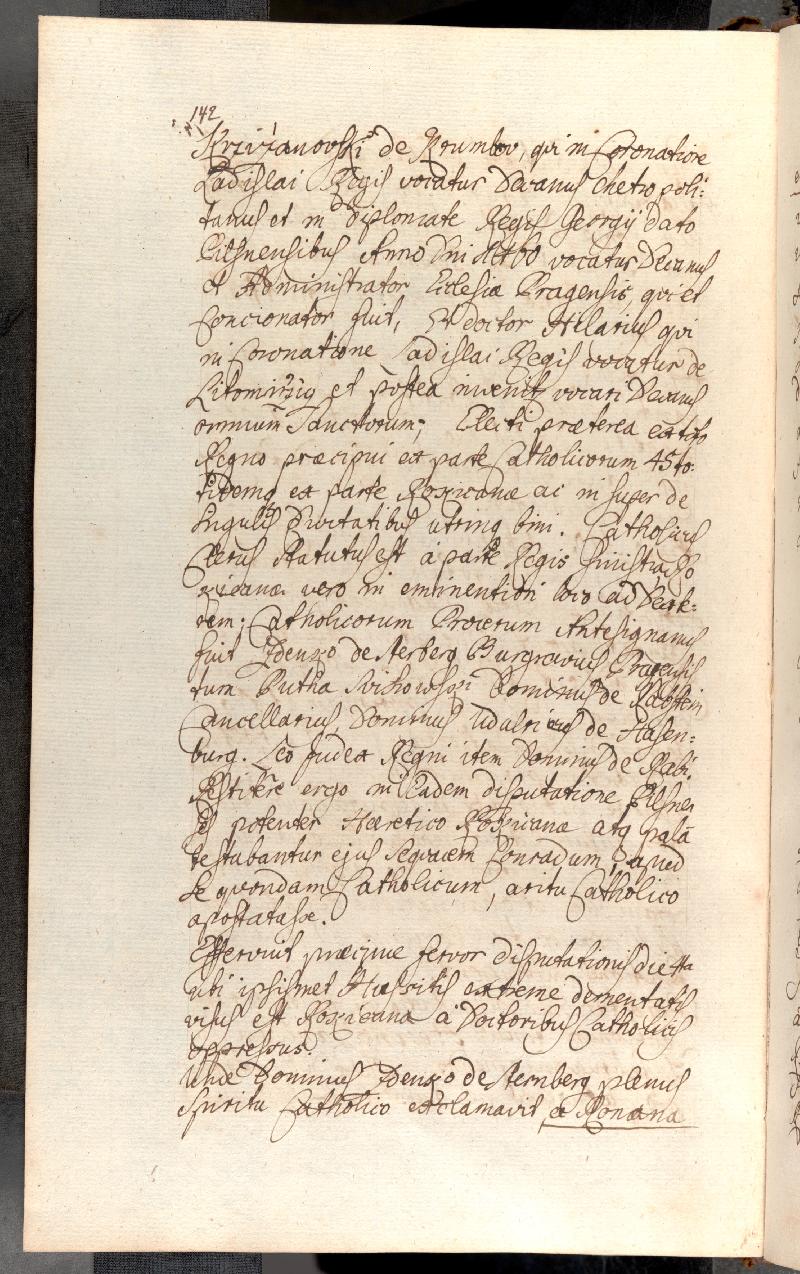 142
Krziżanovski de Krumlov, qui in Coronatione
Ladislai Regis vocatur Decanus Metropoli:
tanus et in diplomate Regis Georgÿ dato
Pilsnensibus Anno Dni 1460 vocatur Decanus
et Administrator Eclesiæ Pragensis, qui et
Concionator fuit, Et doctor Hilarius qui
in Coronatione Ladislai Regis vocatur de
et postea invenitr vocari Decanus
omnium Sanctorum; Electi præterea ex toto
Regno præcipui ex parte Catholicorum 45 to:
tidemq ex parte Rokicanæ ac insuper de
singulis Civitatibus utrinq bini. Catholicus
Clerus statutus est à parte Regis sinistra, Ro
kicanæ vero in eminentiori loco ad Dext:
ram; Catholicorum Procerum Antesignanus
fuit Zdenko de Sterberg Burgravius Pragensis
tum Putha Svihowski Dominus de Rabstein
Cancellarius Dominus Udalricus de Hasen:
burg. Leo Judex Regni item Dominus de Rabi.
Restitêre ergo in eadem disputatione Pilsnen
ses potenter Hæretico Rokicanæ atq palã
testabantur ejus sequacem Conradum, apud
se quondam Catholicum, a ritu Catholico
apostatasse.
Efferuit præcipue fervor disputationis die 4ta
ubi ipsismet Hussitis extreme dementatis
visus est Rokicana à Doctoribus Catholicis
oppressus.
Unde Dominus Zdenko de Sternberg plenus
spiritu Catholico exclamavit a Rokicana